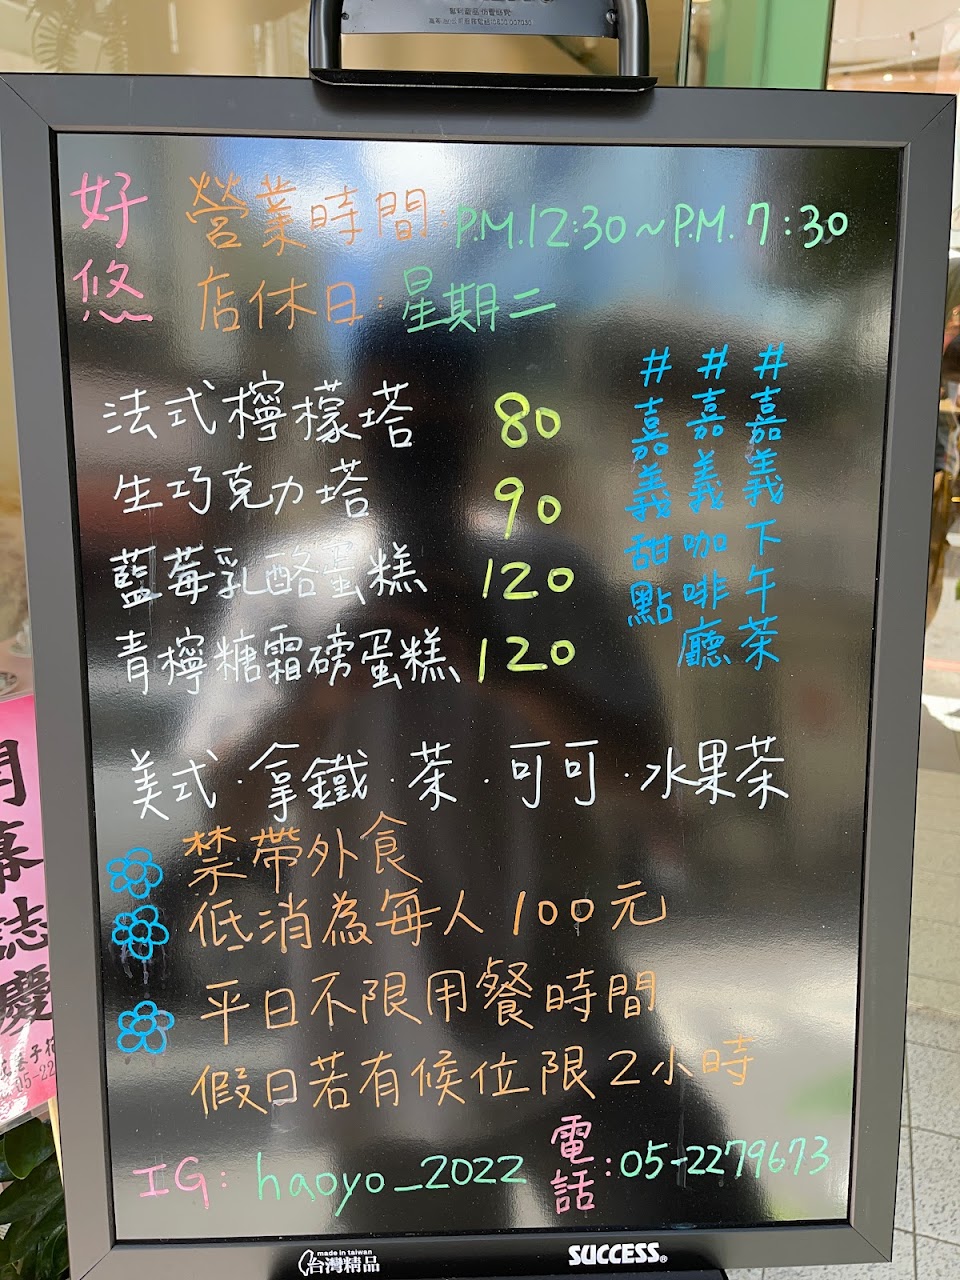 好悠
營業時間:P.M.12:30~P.M.7:30
店休日:星期二
法式檸檬塔 80
生巧克力塔 90
藍莓乳酪蛋糕 120
青檸糖霜磅蛋糕 120
#嘉義下午茶
#嘉義咖啡廳
#嘉義甜點
美式·拿鐵·茶·可可·水果茶
禁帶外食
低消為每人100元
平日不限用餐時間
假日若有候位限2小時
IG:haoyo_2022
電話:05-2279673
made in taiwan
台灣精品
SUCCESS®
開幕誌慶